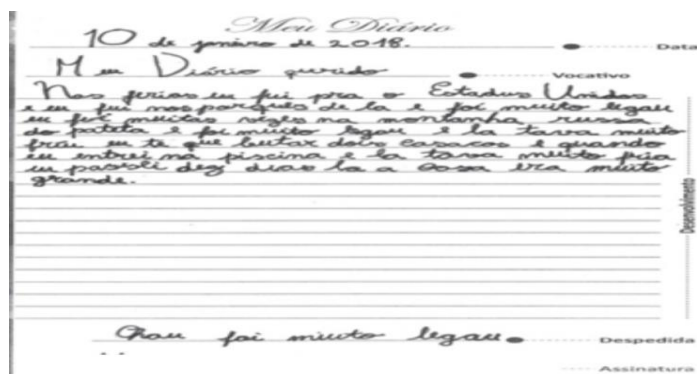 Meu Diário
10 de janeiro de 2018.
Data
Meu Diário qurido
Vocativo
Nas ferias eu fui pra o Estadus Unidos
e eu fui nos parques de la e foi muito legau
eu fui muitas vezes na montanha russa
do pateta e foi muito legau e la tava muito
friu eu te que butar dois casacos e quando
eu entrei na piscina e la tava muito fria
eu passei dez dias la a casa era muito
grande.
Desenvolvimento
Chau foi miuto legau
Despedida
Assinatura